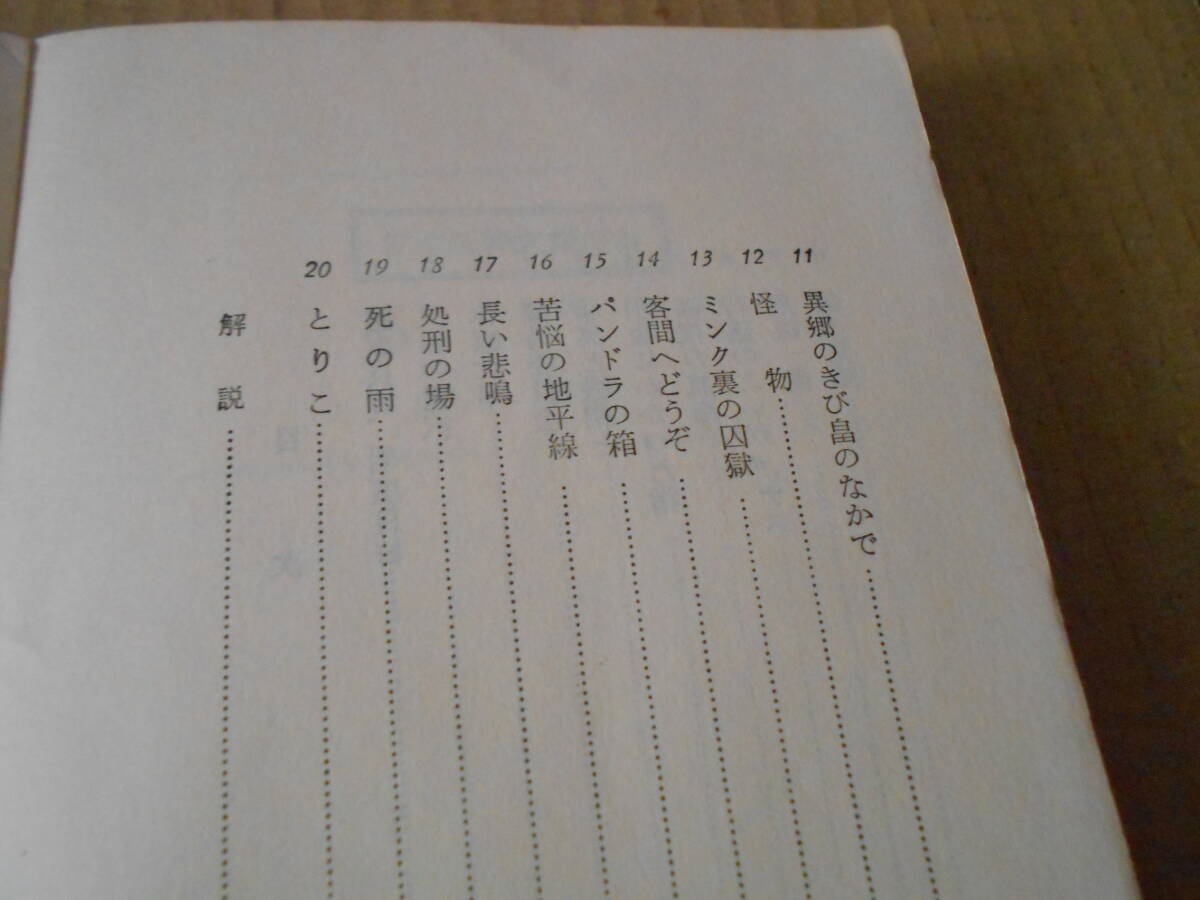 11 異郷のきび畠のなかで
12 怪物
13 ミンク裏の囚獄
14 客間へどうぞ
15 パンドラの箱
16 苦悩の地平線
17 長い悲鳴
18 処刑の場
19 死の雨
20 とりこ
解説